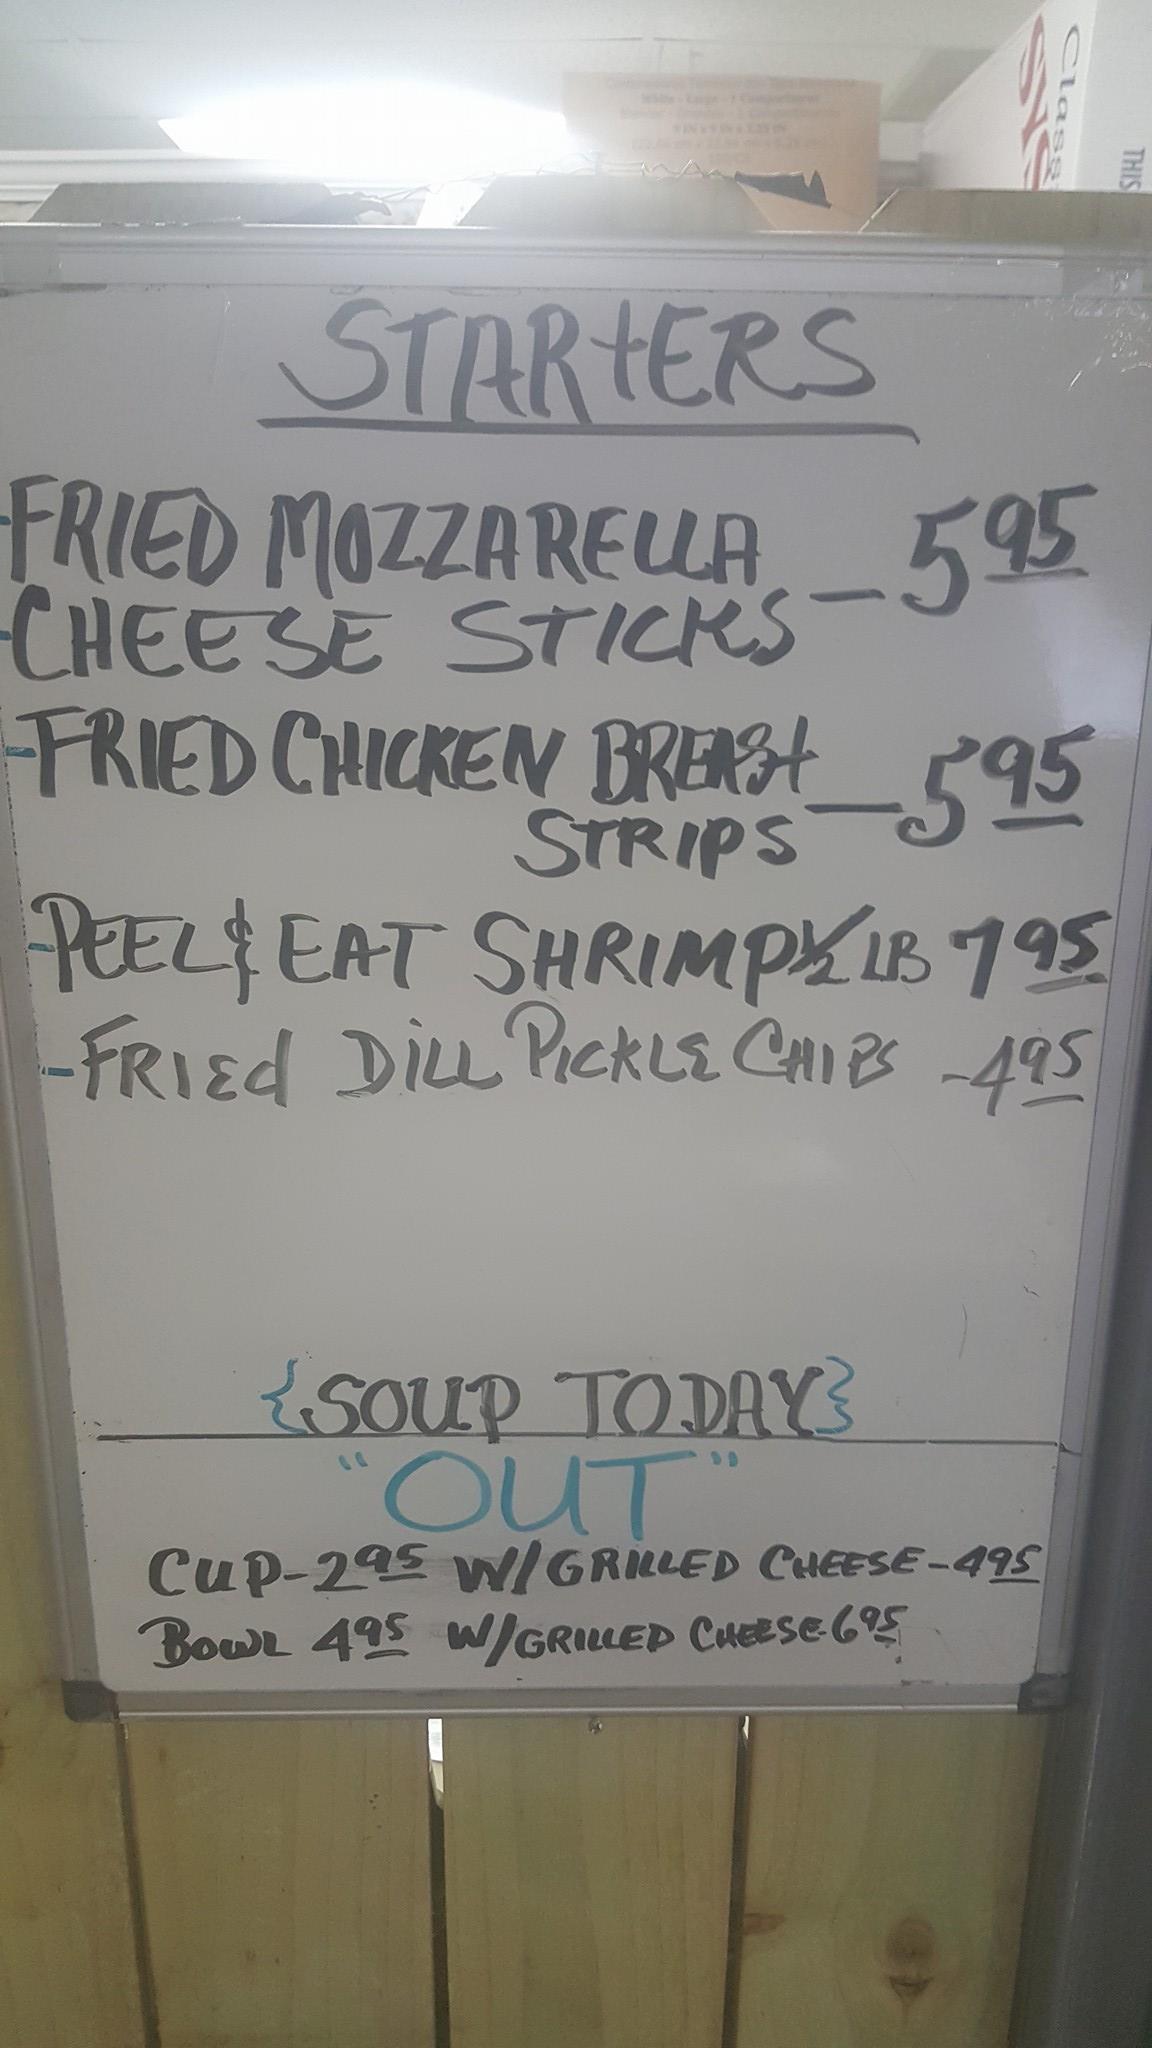 White - Large - 1 Compartment
9 IN x 9 IN x 3.25 IN
Class
SYS
THIS
STARTERS
-FRIED MOZZARELLA
-CHEESE STICKS - 5 95
-FRIED CHICKEN BREAST
STRIPS - 5 95
-PEEL & EAT SHRIMP ½ LB 7 95
-FRIEd DiLL PICKLE CHIPS - 4 95
{SOUP TODAY}
"OUT"
CUP - 2 95 W/GRILLED CHEESE - 4 95
BOWL 4 95 W/GRILLED CHEESE - 6 95